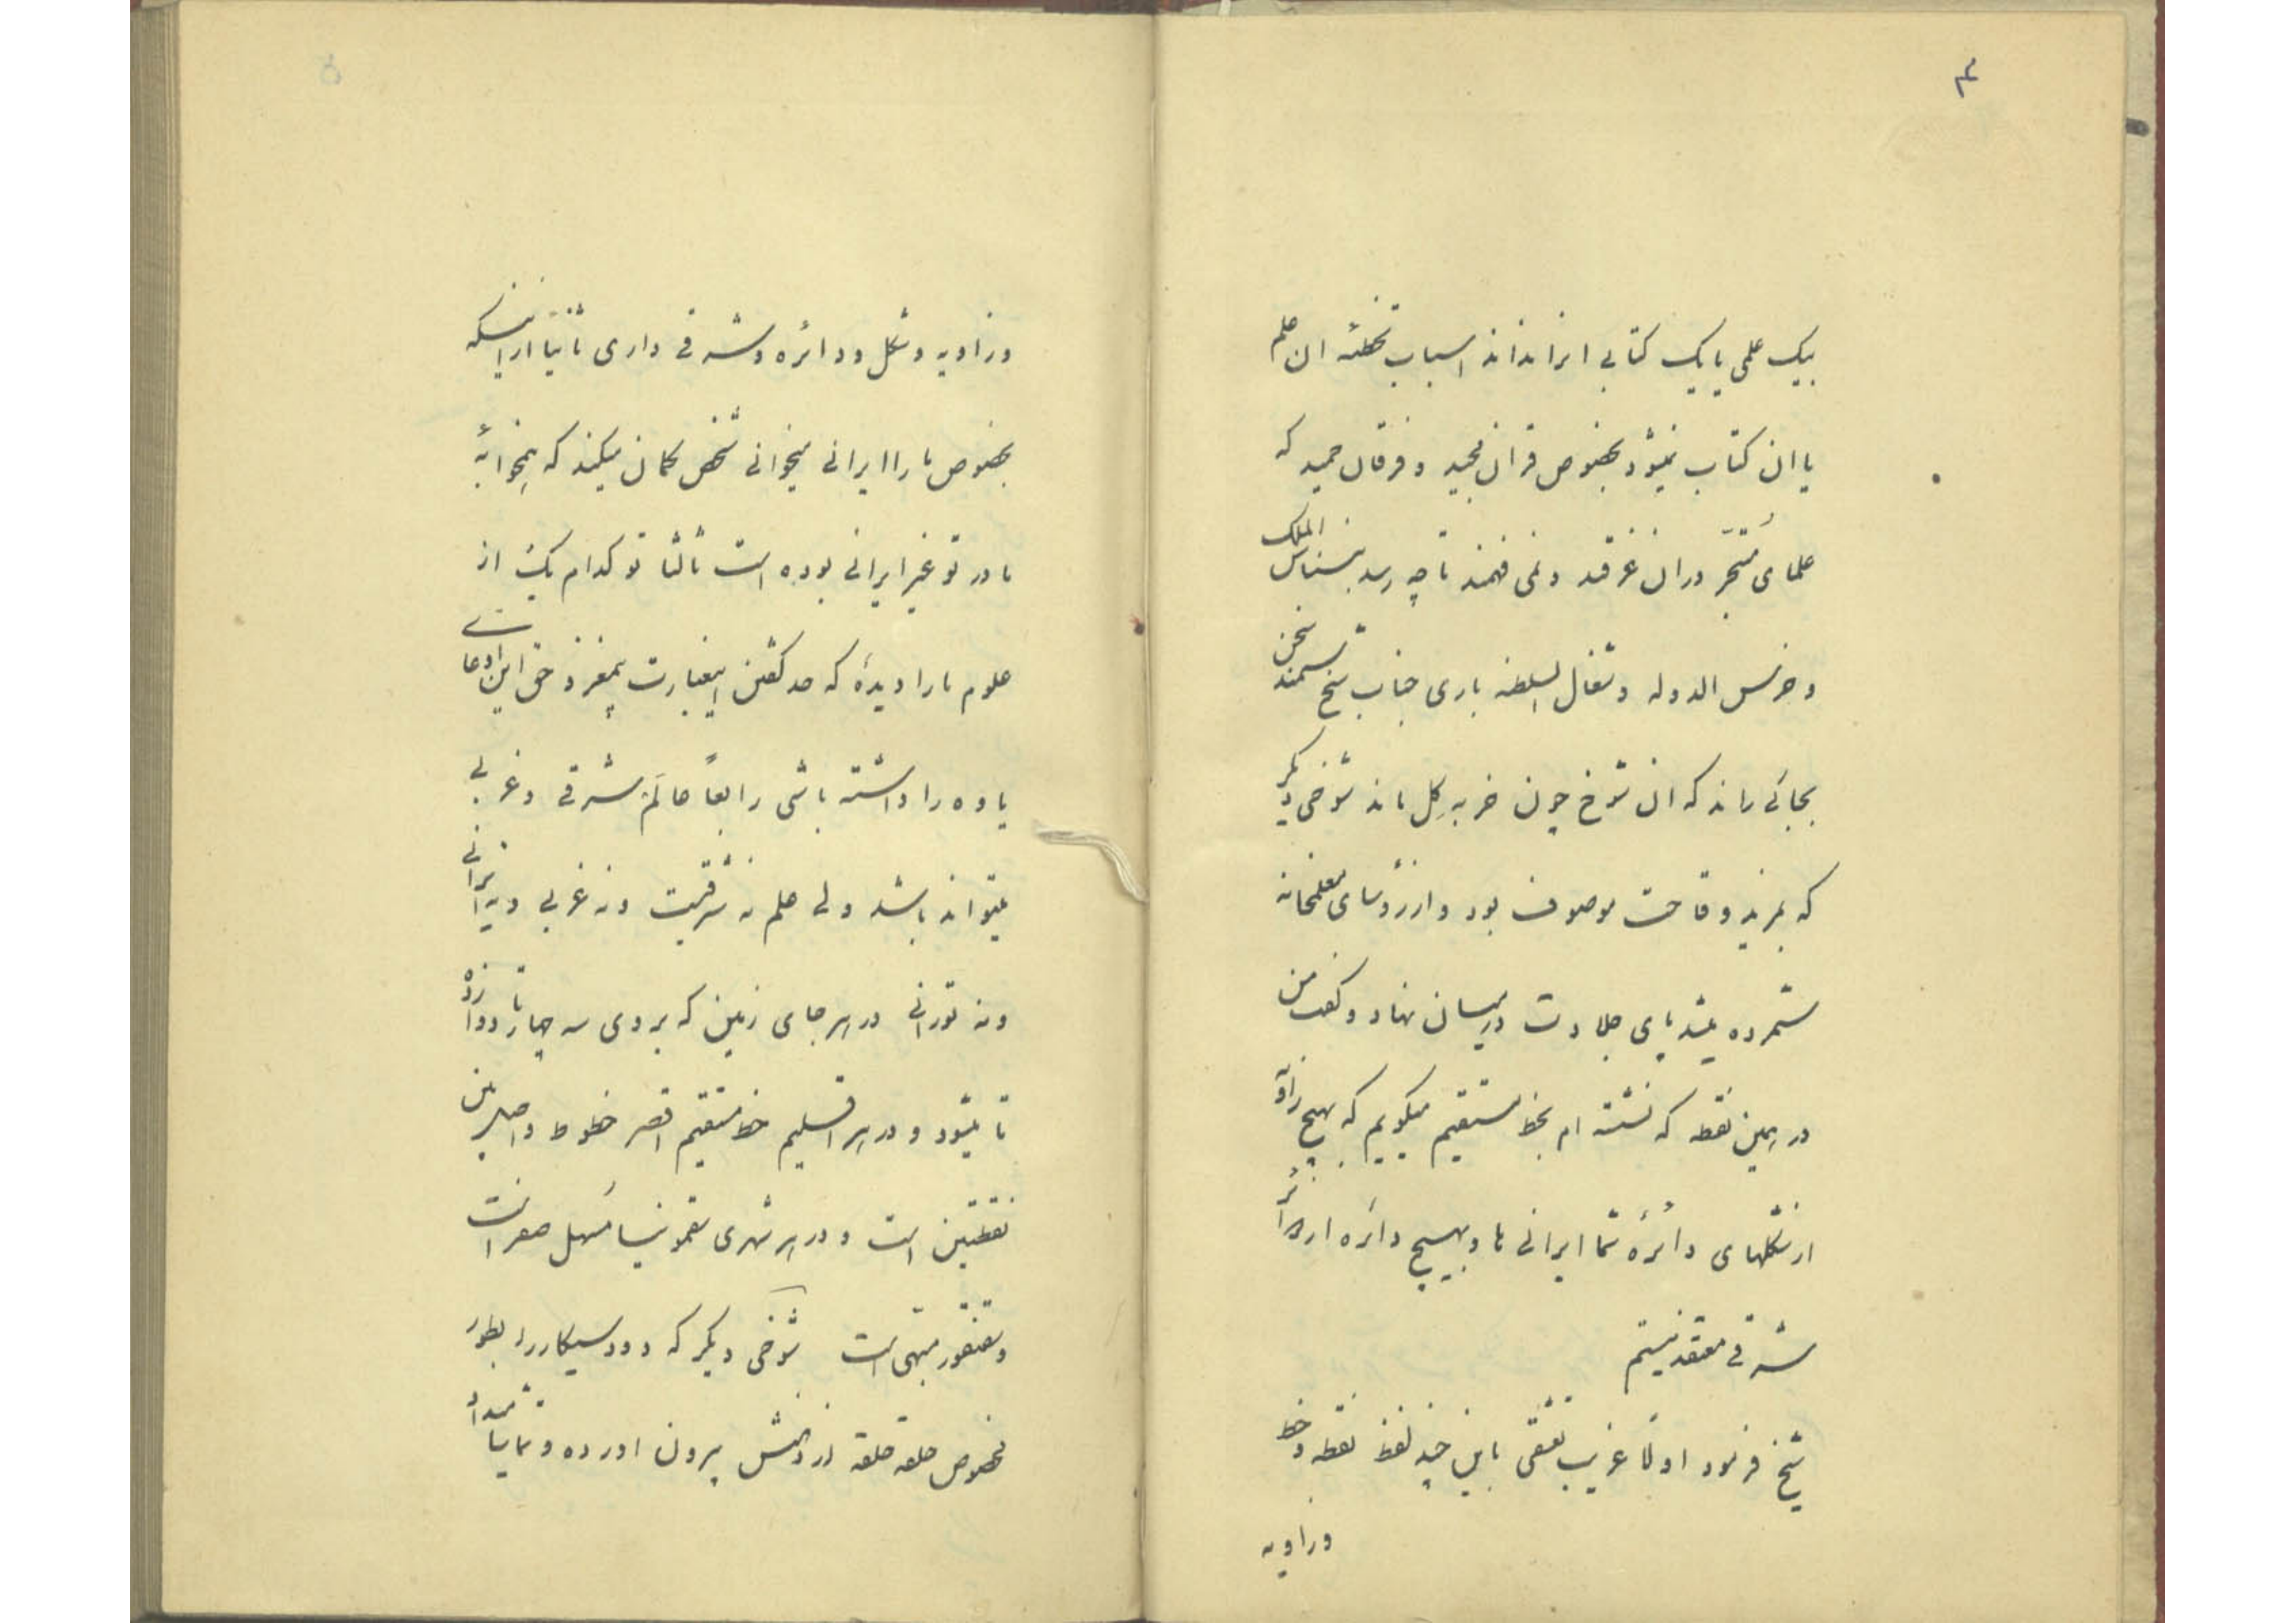 ۴
بیک علمی یا یک کتابی ایراند اند اسباب تخطئه ان علم
یا ان کتاب نمیشود بخصوص قران مجید و فرقان حمید که
علمای متبحّر دران غرقند و نمی فهمند تا چه رسد بنسناس الملک
و خرس الدوله و شغال السلطنه باری جناب شیخ سمند سخن
بجائی راند که ان شوخ چون خر به گِل ماند شوخی دیگر
که بمزید وقاحت موصوف بود و از رؤسای معلمخانه
شمرده میشد پای جلادت در میان نهاد و گفت من
در همین نقطه که نشسته ام بخط مستقیم میگویم که بهیچ زاویه
از شکلهای دائرهٔ شما ایرانی ها و بهیچ دائره از دوائر
شرقی معتقد نیستم
شیخ فرمود اولًا غریب تعشقی باین چند لفظ نقطه و خط
و زاویه
۵
و زاویه و شکل و دائره و شرقی داری ثانیًا از اینکه
بخصوص ما را ایرانی میخوانی شخص گمان میکند که همخوابهٔ
مادر تو غیر ایرانی بوده است ثالثا تو کدام یک از
علوم ما را دیدهٔ که حد گفتن اینعبارت بیمغز و حق این ادعای
یاوه را داشته باشی رابعاً عالَم شرقی و غربی
میتواند باشد ولی علم نه شرقیست و نه غربی و نه ایرانی
و نه تورانی در هر جای زمین که بروی سه چهار تا دوازده
تا میشود و در هر اقلیم خط مستقیم اقصر خطوط واصله بین
نقطتین است و در هر شهری سقمونیا مُسهل صفراست
و سقنقور مبهّی است شوخی دیگر که دود سیگار را بطور
مخصوص حلقه حلقه از دهنش بیرون اورده و تماشا میداد